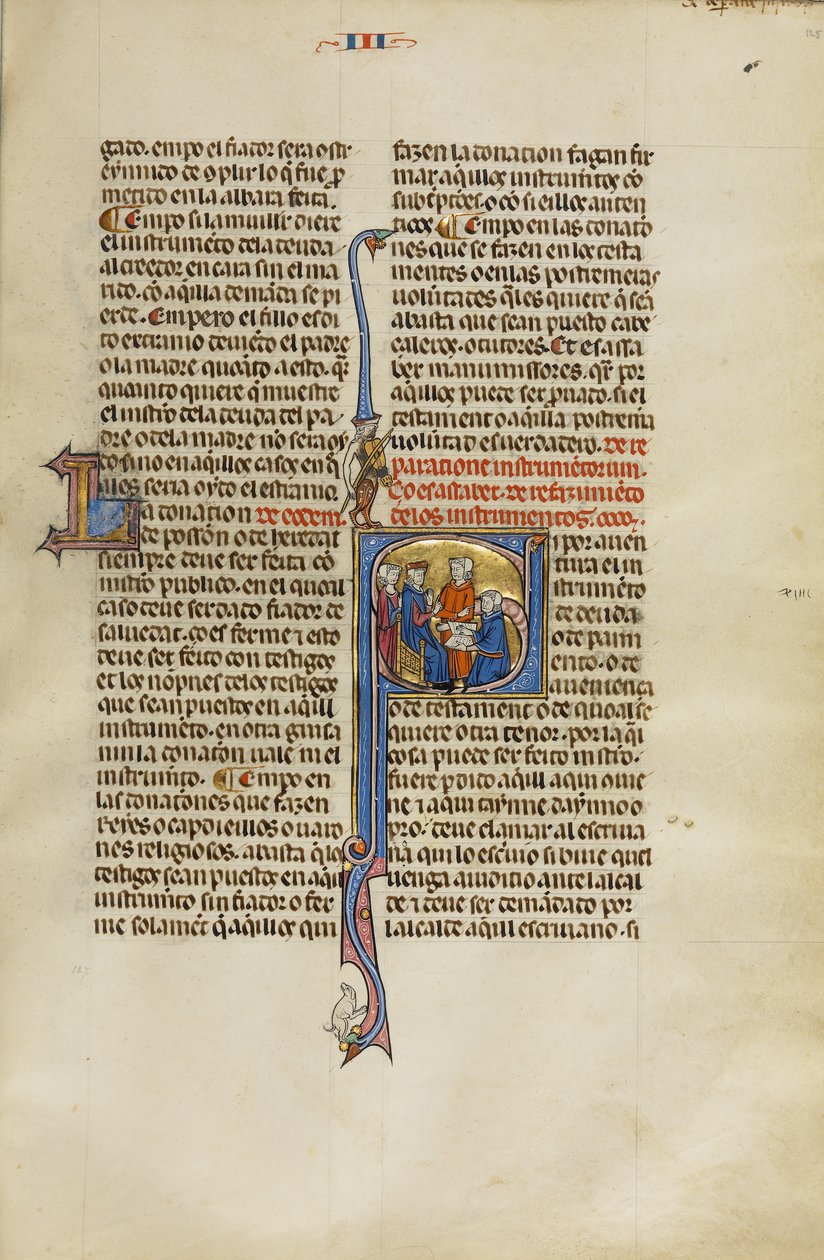 III
125
gado. empo el fiador sera ostr
eynnido de 9plir lo q̃ fue ꝓ
metido en la albara feita.
¶ Empo si la muller diere
el instrumẽto dela deuda
al creedor en cara sin el ma
rido. cõ aq̃lla demãda se pi
erde. Empero el fillo es di
to extranio deuẽto el padre
o la madre quanto a esto. q̃r
quanto quiere q̃ muestre
el instrõ dela deuda del pa
dre o dela madre nõ sera oy
do si no en aq̃llos casos en q̃
ales seria oydo el estranio.
La donation De eodem.
de possõn o de heredat
siempre deue ser feita cõ
instrõ publico. en el qual
caso deue ser dado fiador de
saluedat. ço es ferme ⁊ esto
deue ser feito con testigos
et los nõpnes delos testigos
que sean puestos en aq̃ll
instrumẽto. en otra guisa
nin la donatõn uale ni el
instrumẽto. ¶ Empo en
las donatõnes que fazen
Reyes o capdiellos o uaro
nes religiosos. abasta q̃ los
testigos sean puestos en aq̃ll
instrumẽto sin fiador o fer
me solamẽt q̃ aq̃llos qui
fazen la donation fagan fir
mar aq̃llos instrumẽtos cõ
subsc̃ptões. o cõ siellos auten
ticos ¶ Empo en las donatõ
nes que se fazen en los testa
mentes o en las postremeras
uolũtades q̃les quiere q̃ seã
abasta que sean puesto cabe
çaleros. o tutores. Et es a ssa
ber manumissores. q̃r por
aq̃llos puede ser ꝓuado. si el
testament o aq̃lla postremã
uolũtad es uerdadero. De re
paratione instrumẽtorum.
Ço es assaber. de refazimiẽto
delos instrumentos.
Si por auen
tura el in
strumẽto
de deuda
o de pam
ento. o de
auenienca
o de testament o de qual se
quiere otra tenor. por la q̃l
cosa puede ser feito instrõ.
fuere ꝑdido aq̃ll aqui ouie
ne ⁊ aqui tayne dayno o
pro. deue clamar al escriua
nã qui lo escriuio si biue quel
uenga a iuditio ante lalcal
de ⁊ deue ser demãdado por
lalcalde aq̃ll escriuano. si